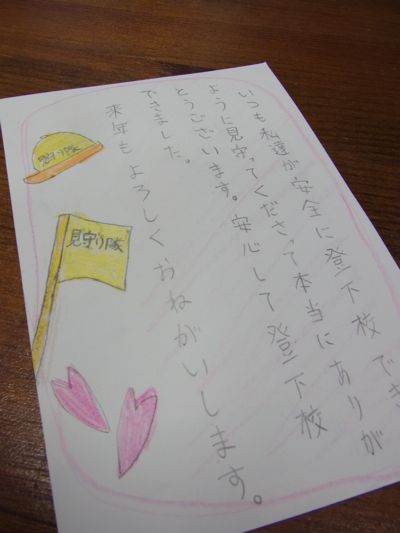 いつも私達が安全に登下校でき
ように見守ってくださって本当にありが
とうございます。安心して登下校
できました。
来年もよろしくおねがいします。
見守り隊
見守り隊